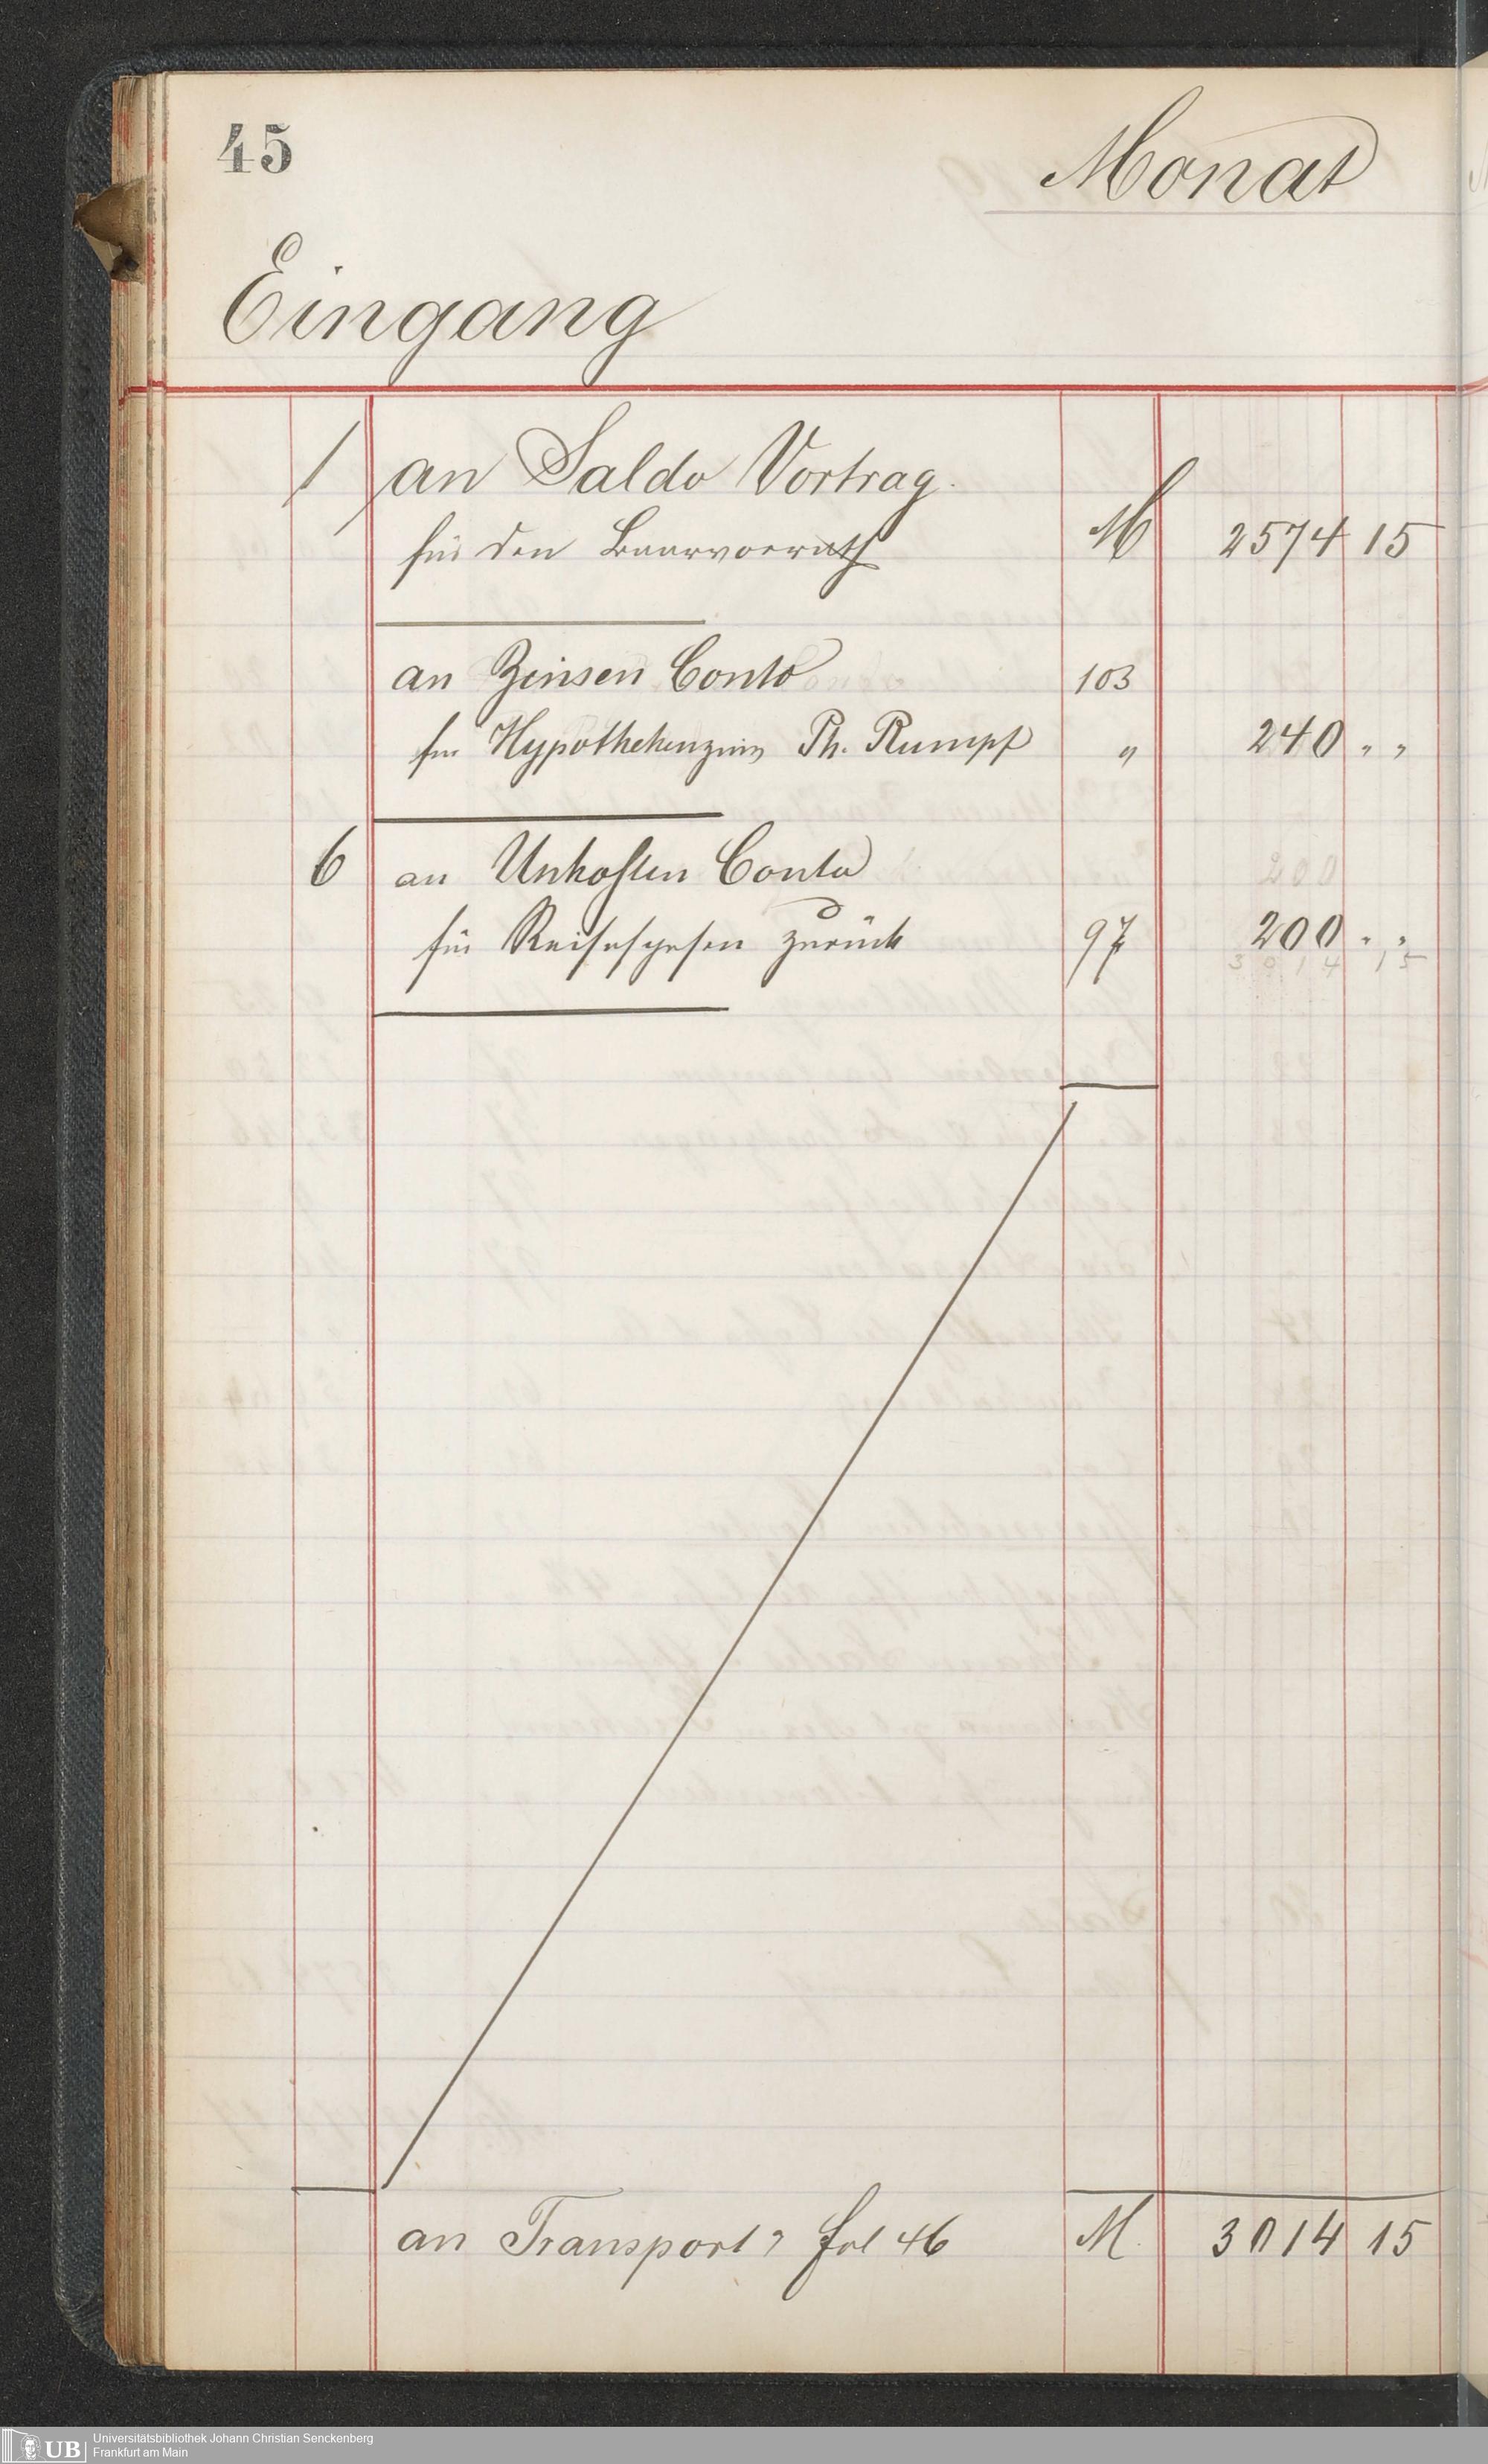 45
Monat
Eingang
1 an Saldo Vortrag.
für den Baarvorrath M 2574 15
an Zinsen Conto 103
für Hypothekenzins Ph. Rumpf " 240 " "
200
6 an Unkosten Conto
für Reisespesen zurück 97 200 " "
3014 15
an Transport fol 46 M. 3014 15
UB Universitätsbibliothek Johann Christian Senckenberg
Frankfurt am Main